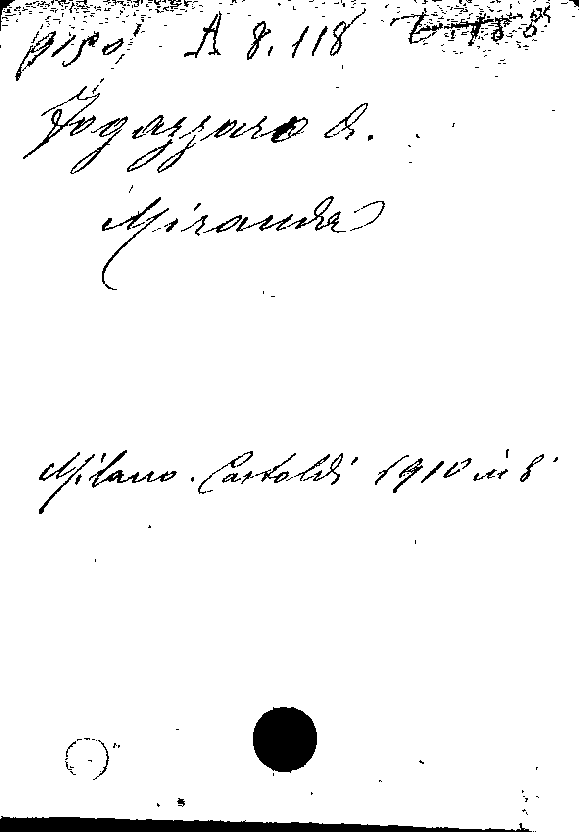 A 8. 118
Fogazzaro A.
Miranda
Milano. Castoldi 1910 in 8°